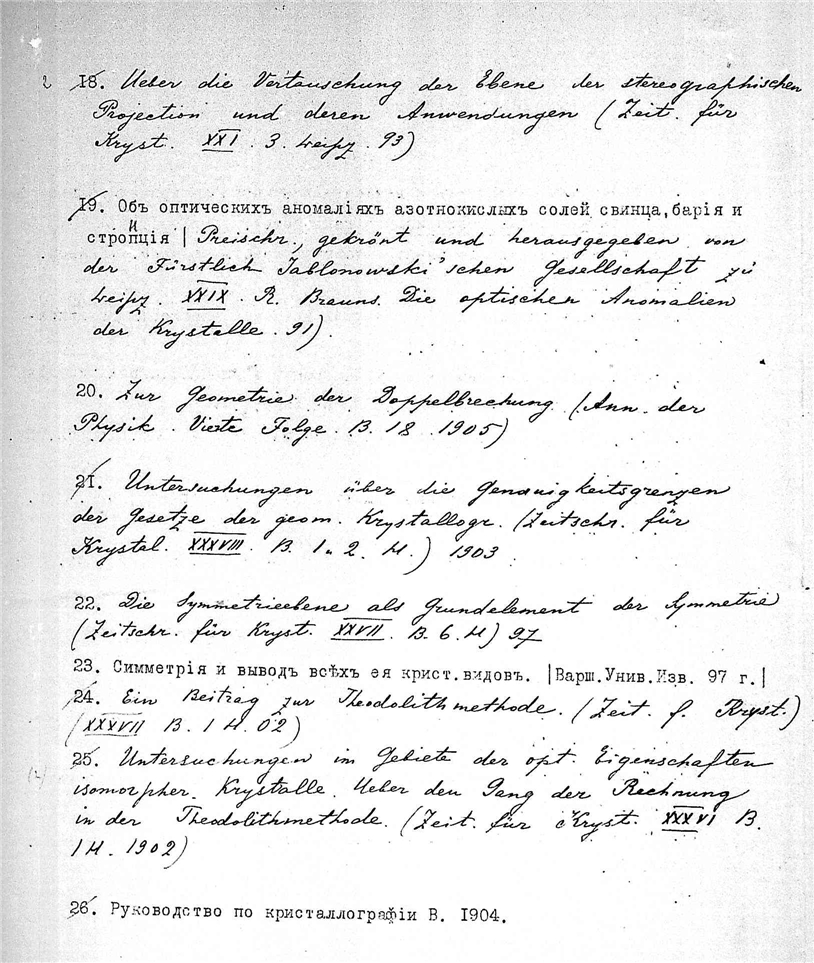 18. Ueber die Vertauschung der Ebene der stereographischen
Projection und deren Anwendungen (Zeit. für
Kryst. XXI. 3. Leipz. 93)
19. Объ оптическихъ аномаліяхъ азотнокислыхъ солей свинца, барія и
стронція | Preisschr., gekrönt und herausgegeben von
der Fürstlich Jablonowski'schen Gesellschaft zu
Leipz. XXIX. R. Brauns. Die optischen Anomalien
der Krystalle. 91).
20. Zur Geometrie der Doppelbrechung (Ann. der
Physik. Vierte Folge. B. 18. 1905)
21. Untersuchungen über die Genauigkeitsgrenzen
der Gesetze der geom. Krystallogr. (Zeitschr. für
Krystal. XXXVIII. B. 1 u 2. H.) 1903
22. Die Symmetrieebene als Grundelement der Symmetrie
(Zeitschr. für Kryst. XXVII. B. 6. H) 97
23. Симметрія и выводъ всѣхъ ея крист.видовъ. |Варш.Унив.Изв. 97 г.|
24. Ein Beitrag zur Theodolithmethode. (Zeit. f. Kryst.)
(XXXVII B. 1 H. 02)
25. Untersuchungen im Gebiete der opt. Eigenschaften
isomorpher Krystalle. Ueber den Gang der Rechnung
in der Theodolithmethode. (Zeit. für Kryst. XXXVI B.
1 H. 1902)
26. Руководство по кристаллографіи В. 1904.